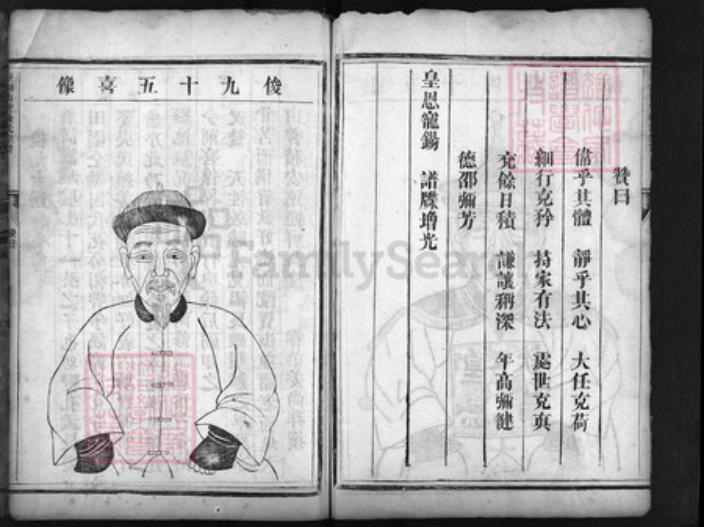 贊曰
偹乎其體 靜乎其心 大任克荷
細行克矜 持家有法 處世克真
充餘日積 謙讓稱深 年高彌健
德邵彌芳
皇恩寵錫 譜牒增光
俊九十五喜像
FamilySearch